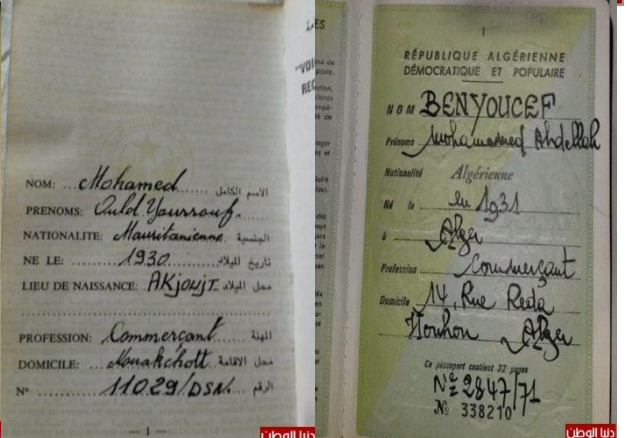 NOM: ... Mohamed ........ الاسم الكامل
PRENOMS: Ould Youssouf.
NATIONALITE: Mauritanienne الجنسية
NE LE: ...... 1930 ........ تاريخ الميلاد
LIEU DE NAISSANCE: AKjoujT. محل الميلاد
PROFESSION: Commerçant المهنة
DOMICILE: Nouakchott محل الاقامة
N° ........ 11029/DSN. الرقم
— 1 —
دنيا الوطن
"VOI
REC
1
RÉPUBLIQUE ALGÉRIENNE
DÉMOCRATIQUE ET POPULAIRE
NOM BENYOUCEF
Prénoms Mohammed Abdellah
Nationalité Algérienne
Né le en 1931
à Alger
Profession Commerçant
Domicile 14, Rue Reda
Houhou Alger
Ce passeport contient 32 pages
N° 2847/71
№ 338210
دنيا الوطن